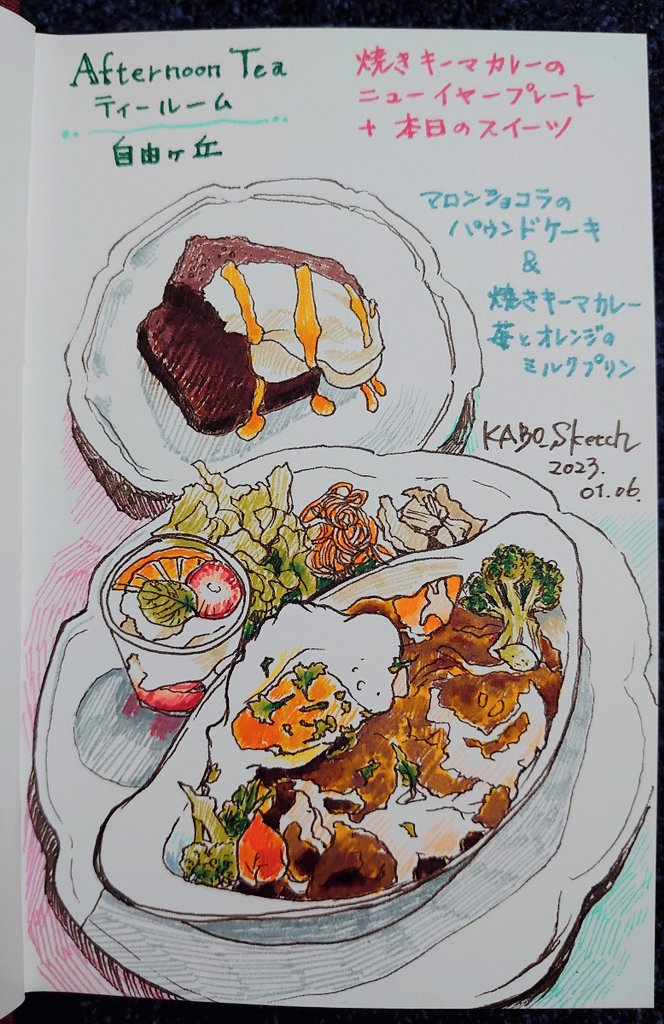 Afternoon Tea
ティールーム
自由ヶ丘
焼きキーマカレーの
ニューイヤープレート
+ 本日のスイーツ
マロンショコラの
パウンドケーキ
&
焼きキーマカレー
苺とオレンジの
ミルクプリン
KABO_Sketch
2023.
01.06.